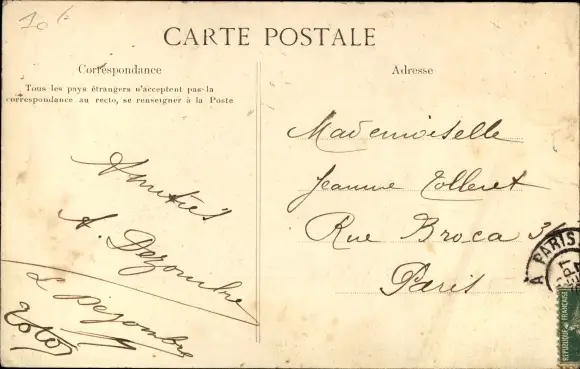 10 f
CARTE POSTALE
Correspondance
Tous les pays étrangers n'acceptent pas la
correspondance au recto, se renseigner à la Poste
Adresse
Amitiés
A. Dezombre
L Dezombre
Toto
Mademoiselle
Jeanne Tolleret
Rue Broca 31
Paris
A PARIS
SEPT
REPUBLIQUE FRANÇAISE